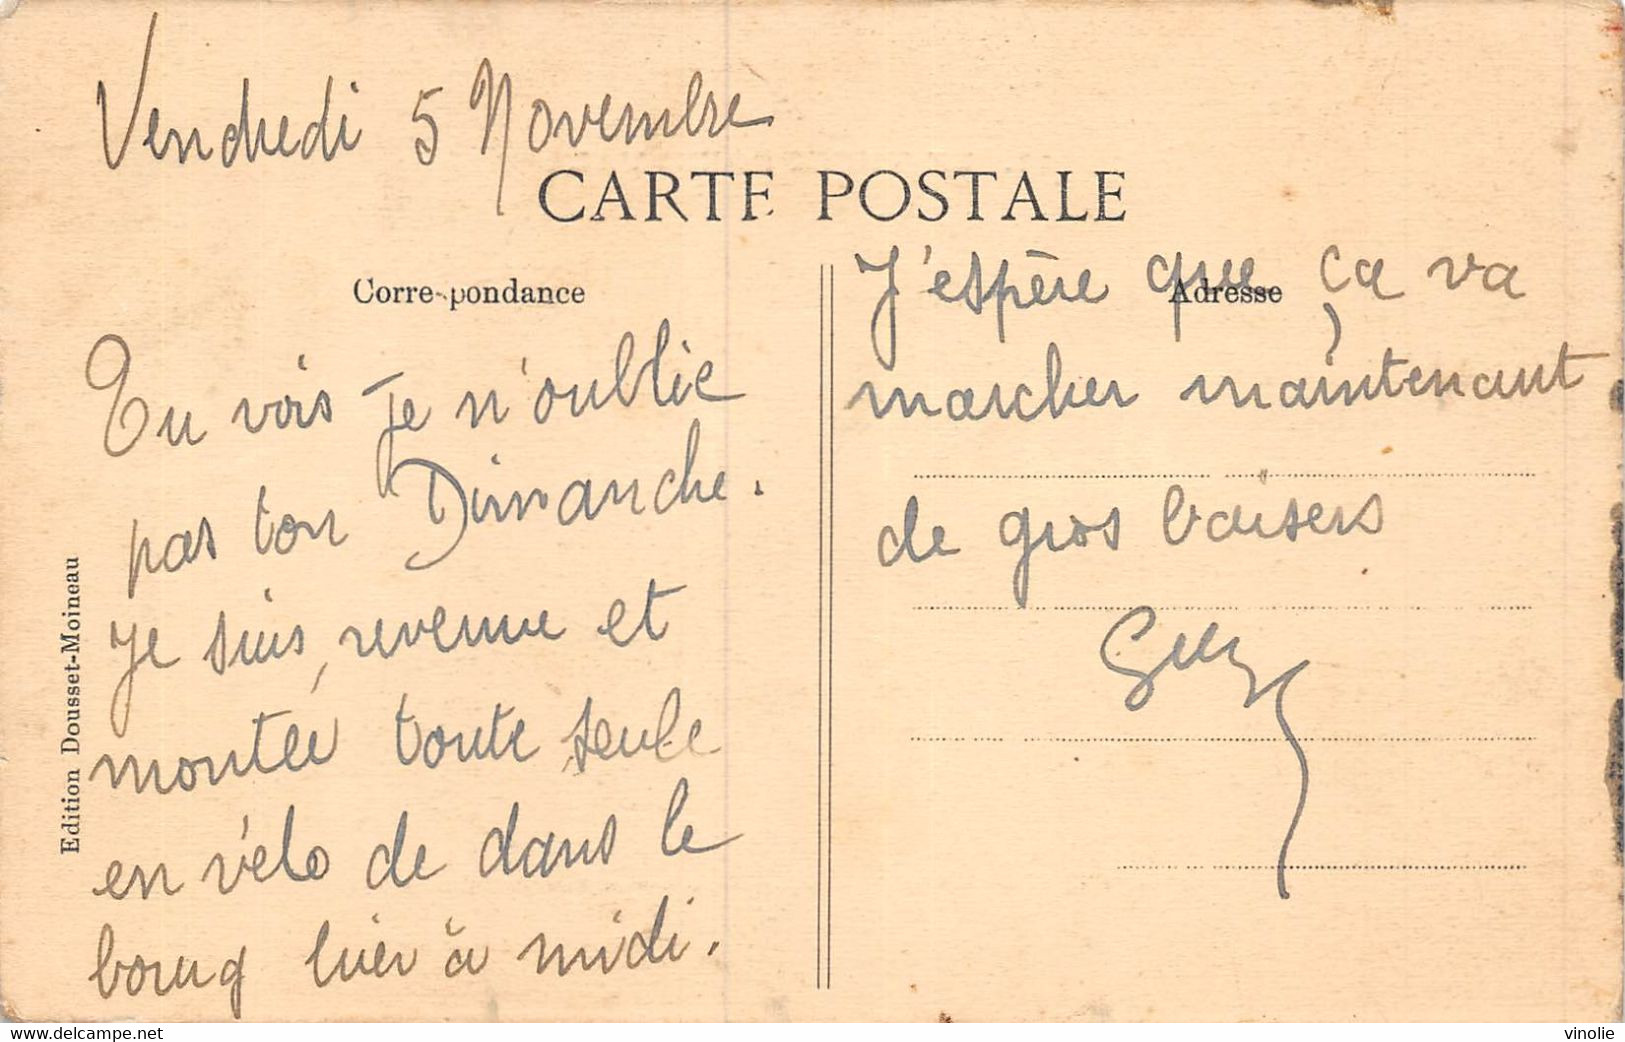 Vendredi 5 Novembre
CARTE POSTALE
Corre-pondance
Tu vois je n'oublie
pas ton Dimanche.
Je suis, revenue et
montée toute seule
en vélo de dans le
bourg hier à midi.
Edition Dousset-Moineau
Adresse
J'espère que ça va
marcher maintenant
de gros baisers
delcampe.net
vinolie